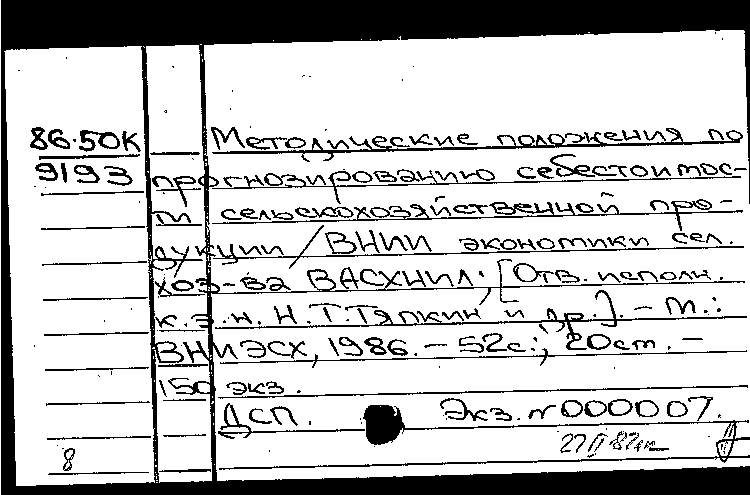 86-50К Методические положения по
9193 прогнозированию себестоимос-
ти сельскохозяйственной про-
дукции / ВНИИ экономики сел.
хоз-ва ВАСХНИЛ; [Отв. исполн.
к.э.н. Н.Т.Тяпкин и др.]. - М.:
ВНИЭСХ, 1986. - 52с.; 20см. -
150 экз.
ДСП. Экз. № 000007.
8